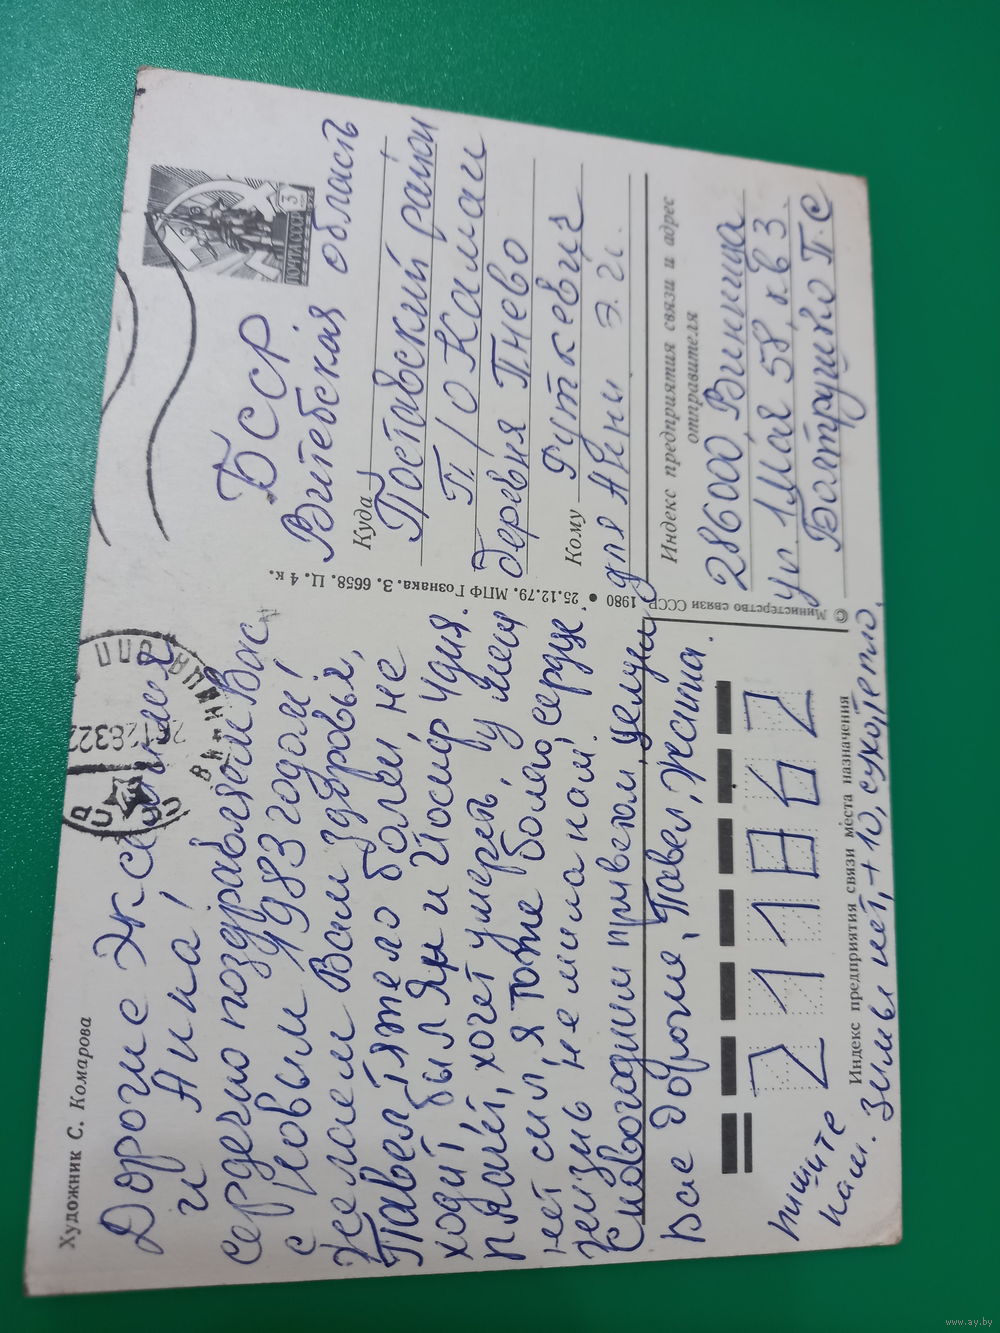 Художник С. Комарова
Дорогие Женя
и Анна!
сердечно поздравляем Вас
с Новым 1983 годом!
Желаем Вам здоровья,
Павел тяжело болел, не
ходит был Ян и Йосиф Чдия.
плачет, хочет умереть, у меня
нет сил я тоже болею, сердце
жизнь не мила нам.
С новогодним приветом, целуем
Вас дорогие, Павел, Жанна.
пишите
нам. Зимы нет, +10, сухо, тепло.
211867
Индекс предприятия связи места назначения
© Министерство связи СССР. 1980 • 25.12.79. МПФ Гознака. З. 6658. Ц. 4 к.
ПОЧТА СССР
3
ВИННИЦА
БССР
Витебская область
Куда
Поставский район
П/О Камаи
деревня Пнево
Кому Руткевич
для Анны Э. И.
Индекс предприятия связи и адрес
отправителя
286000 Винница
ул. 1 Мая 58, кв 3.
Балтрушко П. С
www.ay.by